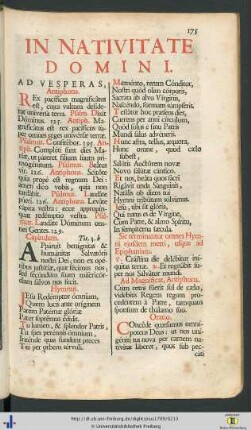 175
IN NATIVITATE
DOMINI.
AD VESPERAS,
Antiphona.
REx pacificus magnificatus
est, cujus vultum desiderat
universa terra. Psalm. Dixit
Dominus. 127. Antiph. Ma-
gnificatus est rex pacificus su-
per omnes reges universæ terræ.
Psalmus. Confitebor. 195. An-
tiph. Completi sunt dies Ma-
riæ, ut pareret filium suum pri-
mogenitum. Psalmus. Beatus
vir. 126. Antiphona. Scitote
quia prope est regnum Dei:
amen dico vobis, quia non
tardabit. Psalmus. Laudate
pueri. 126. Antiphona. Levate
capita vestra: ecce appropin-
quat redemptio vestra. Psal-
mus. Laudate Dominum omnes
Gentes. 129.
Capitulum. Tit. 3. b
APparuit benignitas &
humanitas Salvatoris
nostri Dei, non ex ope-
ribus justitiæ, quæ fecimus nos,
sed secundum suam misericor-
diam salvos nos fecit.
Hymnus.
JEsu Redemptor omnium,
Quem lucis ante originem
Parem Paternæ gloriæ
Pater supremus edidit.
Tu lumen, & splendor Patris,
Tu spes perennis omnium,
Intende quas fundunt preces
Tui per orbem servuli.
Memento, rerum Conditor,
Nostri quod olim corporis,
Sacrata ab alvo Virginis,
Nascendo, formam sumpseris.
Testatur hoc præsens dies,
Currens per anni circulum,
Quod solus e sinu Patris
Mundi salus adveneris.
Hunc astra, tellus, æquora,
Hunc omne, quod cælo
subest,
Salutis Auctorem novæ
Novo salutat cantico.
Et nos, beata quos sacri
Rigavit unda Sanguinis,
Natalis ob diem tui
Hymni tributum solvimus.
Jesu, tibi sit gloria,
Qui natus es de Virgine,
Cum Patre, & almo Spiritu,
In sempiterna sæcula.
Sic terminantur omnes Hym-
ni ejusdem metri, usque ad
Epiphaniam.
℣. Crastina die delebitur ini-
quitas terræ. ℟. Et regnabit su-
per nos Salvator mundi.
Ad Magnificat, Antiphona.
Cum ortus fuerit sol de cælo,
videbitis Regem regum pro-
cedentem a Patre, tanquam
sponsum de thalamo suo.
Oratio.
COncede quæsumus omni-
potens Deus: ut nos uni-
geniti tui nova per carnem na-
tivitas liberet; quos sub pec-
cati
© Universitätsbibliothek Freiburg